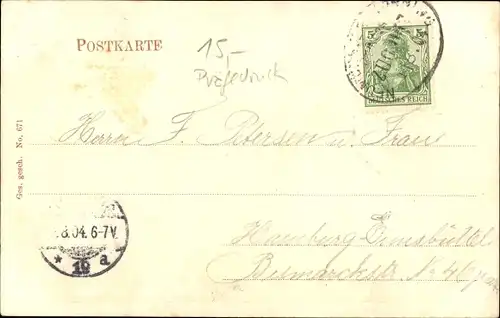 POSTKARTE
15,-
Prägedruck
5
DEUTSCHES REICH
ZUG
Herrn F. Petersen u. Frau
Ges. gesch. No. 671
.8.04. 6-7V.
* 19 a
Hamburg-Eimsbüttel
Bismarckstr. No 40